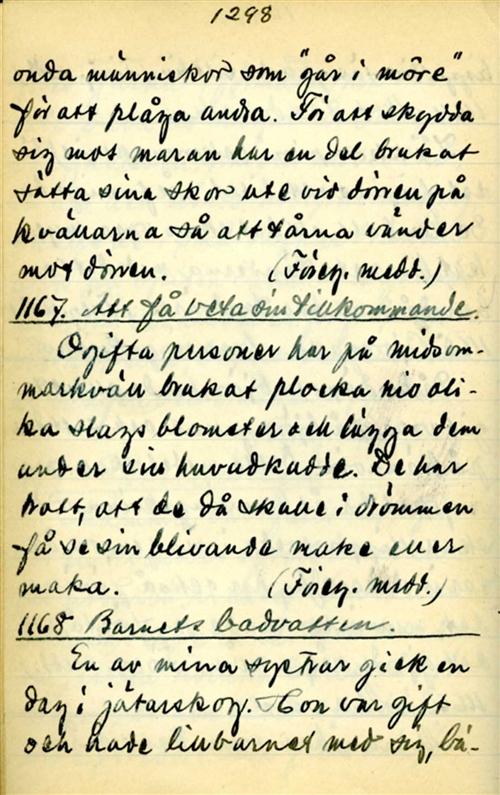 1298
onda människor som "går i möre"
för att plåga andra. För att skydda
sig mot maran har en del brukat
sätta sina skor ute vid dörren på
kvällarna så att tårna vänder
mot dörren. (Föreg. medd.)
1167. Att få veta sin tillkommande.
Ogifta personer har på midsom-
markväll brukat plocka nio oli-
ka slags blomster och lägga dem
under sin huvudkudde. De har
trott, att de då skulle i drömmen
få se sin blivande make eller
maka. (Föreg. medd.)
1168 Barnets badvatten.
En av mina systrar gick en
dag i jätarskog. Hon var gift
och hade lillbarnet med sig, bå-